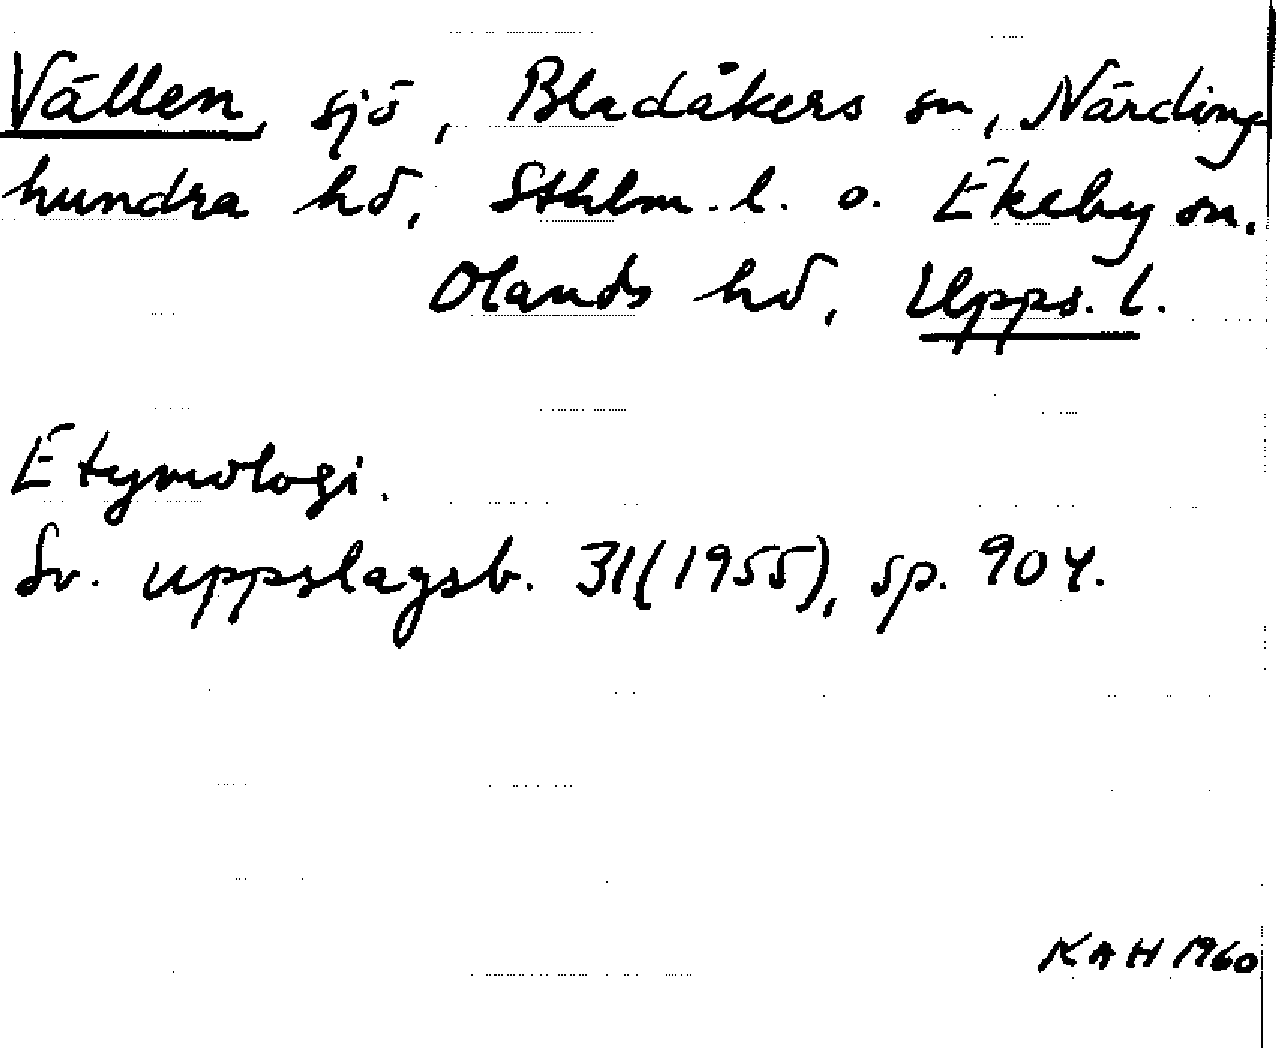 Vällen, sjö, Bladåkers sn, Närding
hundra hd, Sthlm. l. o. Ekeby sn.
Olands hd, Upps. l.
Etymologi.
Sv. uppslagsb. 31(1955), sp. 904.
KAH 1960